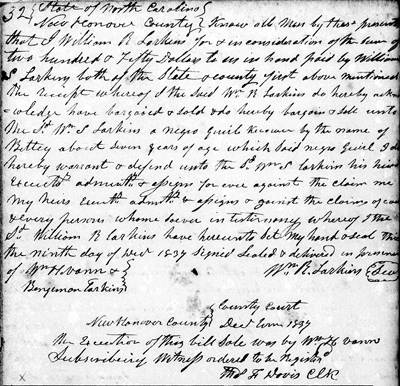 32 State of North Carolina
New Hanover County Know all Men by these presents
that I William R Larkins for & in consideration of the sum of
two hundred & Fifty Dollars to us in hand paid by William
S Larkins both of the State & county just above mentioned
the receipt whereof I the said Wm R Larkins do hereby ackn
owledge have bargained & sold & do hereby bargain & sell unto
the Sd. Wm S Larkins a negro Guirl known by the name of
Bettey about seven years of age which said negro Guirl I do
hereby warrant & defend unto the Sd. Wm S Larkins his heirs
Executrs. adminrs. & assigns for ever against the claim me
My heirs adminrs & assigns & gainst the claims of
& every person whome soever in testemoney whereof I the
Sd. William R Larkins have hereunto set my hand & seal this
the ninth day of 1839 Signed Sealed & delivered in presence
of Wm H. Vann & Wm. R. Larkins Seal
Benjemon Larkins
County Court
New Hanover County Decr Term 1839
The Execution of this bill Sale was by Wm H Vann
Subscribing Witness ordered to be Registerd
Thos F Davis Clk